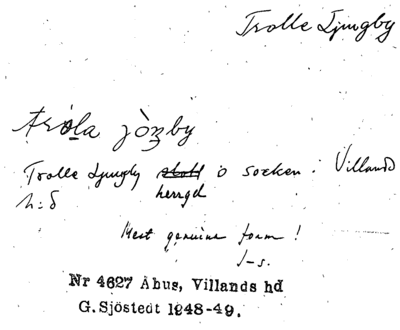 Trolle Ljungby
tròla jòŋby
Trolle Ljungby ~~slott~~ o socken i Villands
herrgd
h:d
Mest genuine form!
J-s.
Nr 4627 Åhus, Villands hd
G. Sjöstedt 1948-49.